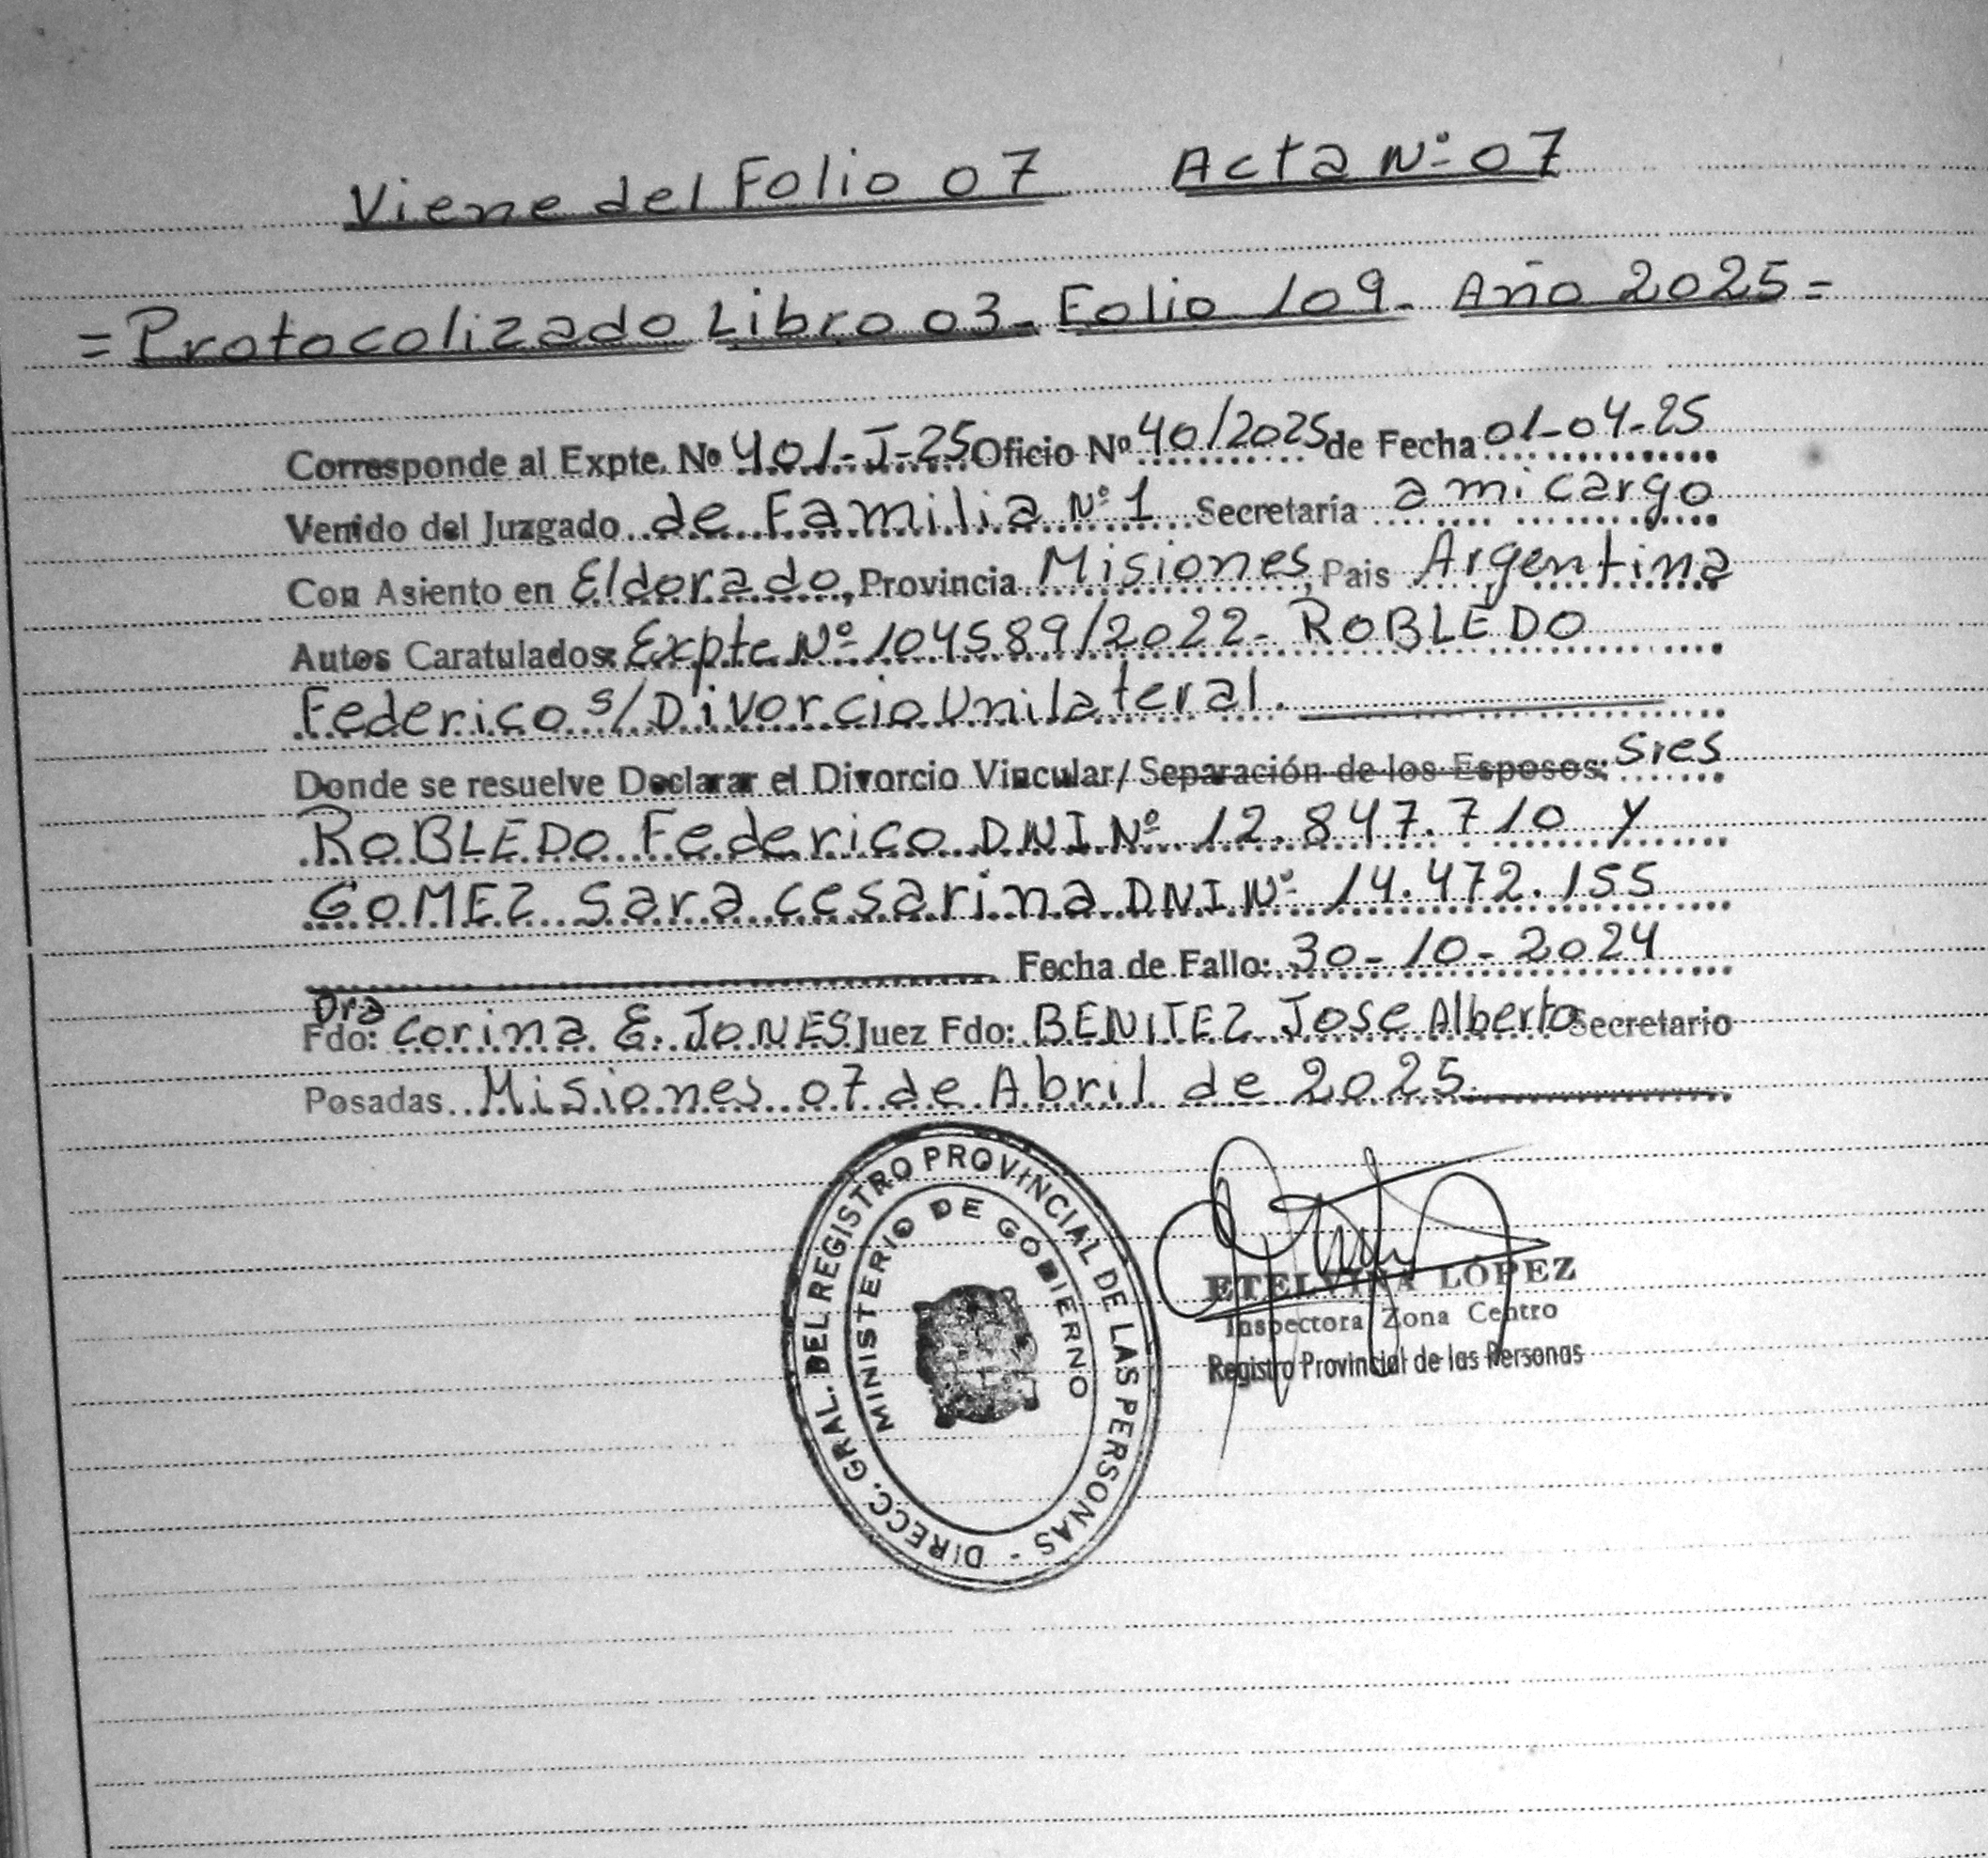 Viene del Folio 07 Acta Nº 07
= Protocolizado Libro 03- Folio 109- Año 2025=
Corresponde al Expte. Nº 401-J-25 Oficio Nº 40/2025 de Fecha 01-04-25
Venido del Juzgado de Familia Nº 1 Secretaría a mi cargo
Con Asiento en Eldorado, Provincia Misiones, Pais Argentina
Autos Caratulados: Expte Nº 104589/2022- ROBLEDO
Federico s/ Divorcio Unilateral.
Donde se resuelve Declarar el Divorcio Vincular/ Separación de los Esposos: Sres
ROBLEDO Federico DNI Nº 12.847.710 y
GOMEZ Sara Cesarina DNI Nº 14.472.155
Fecha de Fallo: 30-10-2024
Dra
Fdo: Corina E. JONES Juez Fdo: BENITEZ Jose Alberto Secretario
Posadas Misiones 07 de Abril de 2025
DIRECC. GRAL. DEL REGISTRO PROVINCIAL DE LAS PERSONAS -
MINISTERIO DE GOBIERNO
ETELVINA LÓPEZ
Inspectora Zona Centro
Registro Provincial de las Personas